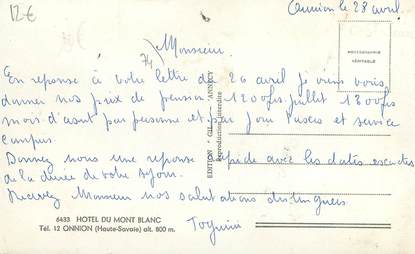 12€
Onnion le 28 avril
74
Monsieur
PHOTOGRAPHIE
VÉRITABLE
En reponse à votre lettre du 26 avril je viens vous
donner nos prix de pension 1200frs juillet 1300frs
mois d'aout par personne et par jour taxes et service
compris.
Donnez nous une reponse rapide avec les dates exactes
de la durée de votre sejour.
Recevez Monsieur nos salutations distinguées
EDITION "GIL" ANNECY
Reproduction interdite
6433 HOTEL DU MONT BLANC
Tél. 12 ONNION (Haute-Savoie) alt. 800 m.